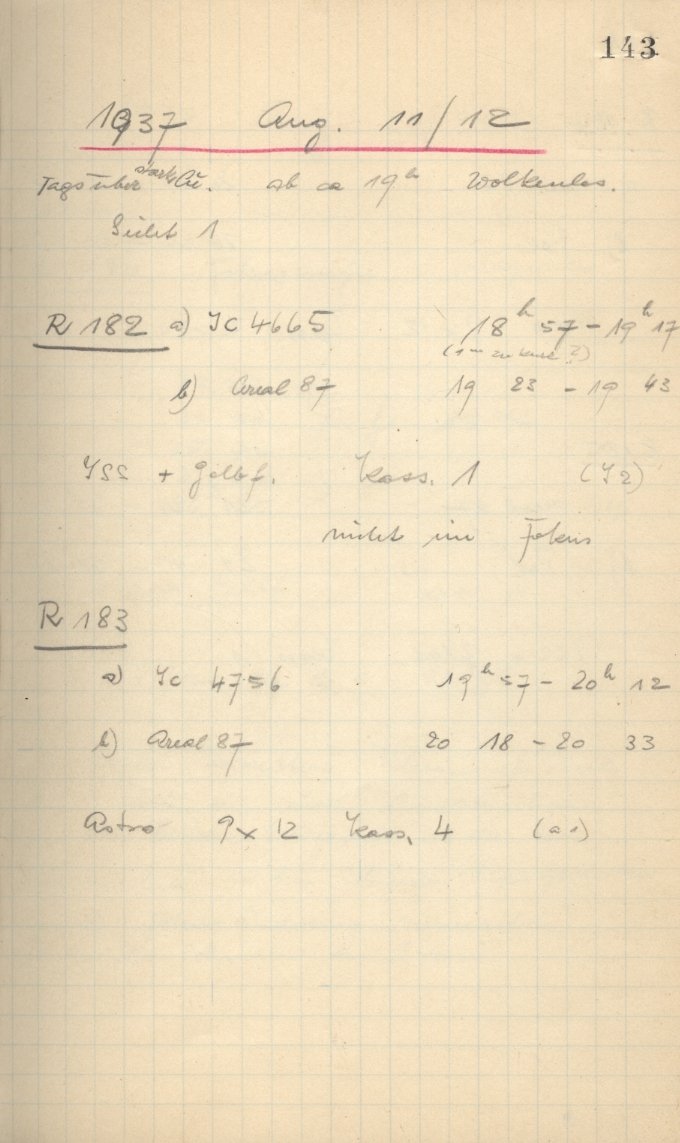 143
1937 Aug. 11/12
Tagsüber stark Cu. ab ca 19h Wolkenlos.
Sicht 1
R 182 a) IC 4665 18h 57 - 19h 17
b) Areal 87 19 23 - 19 43
ISS + Gelbf. Kass. 1 (I2)
nicht im Fokus
R 183
a) Ic 4756 19h 57 - 20h 12
b) Areal 87 20 18 - 20 33
Astro 9 x 12 Kass. 4